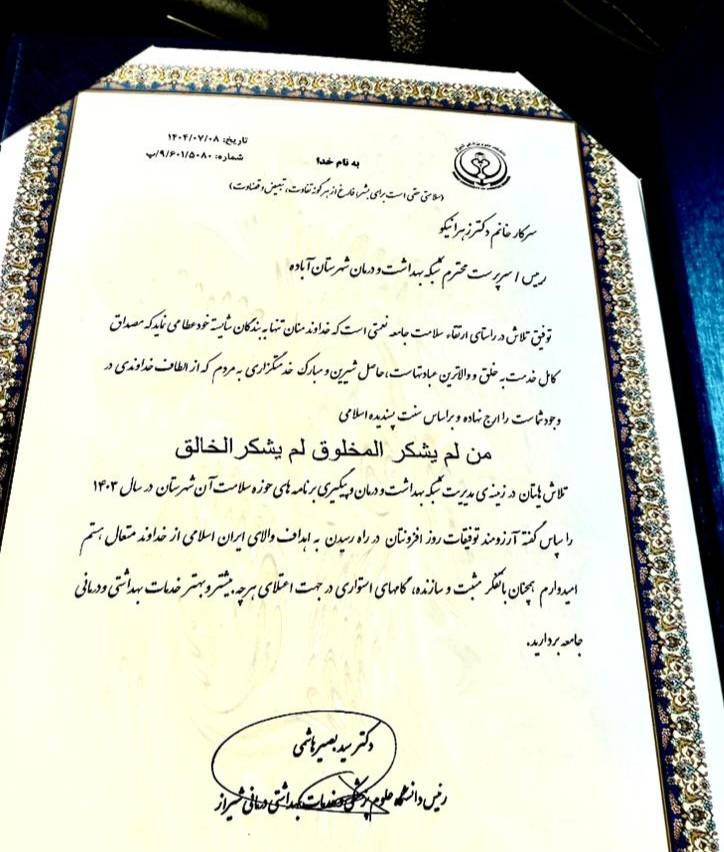 تاریخ: ۱۴۰۴/۰۷/۰۸
شماره: ۹/۶۰۱/۵۰۸۰/پ
به نام خدا
(سلامتی حقی است برای بشر، فارغ از هر گونه تفاوت، تبعیض و قضاوت)
سرکار خانم دکتر زهرا نیکو
رییس / سرپرست محترم شبکه بهداشت و درمان شهرستان آباده
توفیق تلاش در راستای ارتقاء سلامت جامعه نعمتی است که خداوند منان تنها به بندگان شایسته خود عطا می نماید که مصداق
کامل خدمت به خلق و والاترین عبادتهاست، حاصل شیرین و مبارک خدمتگزاری به مردم که از الطاف خداوندی در
وجود شماست را ارج نهاده و بر اساس سنت پسندیده اسلامی
من لم یشکر المخلوق لم یشکر الخالق
تلاش هایتان در زمینه ی مدیریت شبکه بهداشت و درمان و پیگیری برنامه های حوزه سلامت آن شهرستان در سال ۱۴۰۳
را سپاس گفته آرزومند توفیقات روز افزونتان در راه رسیدن به اهداف والای ایران اسلامی از خداوند متعال هستم
امیدوارم همچنان با تفکر مثبت و سازنده، گامهای استواری در جهت اعتلای هر چه بیشتر و بهتر خدمات بهداشتی و درمانی
جامعه بردارید.
دکتر سید بصیر هاشمی
رئیس دانشگاه علوم پزشکی و خدمات بهداشتی درمانی شیراز